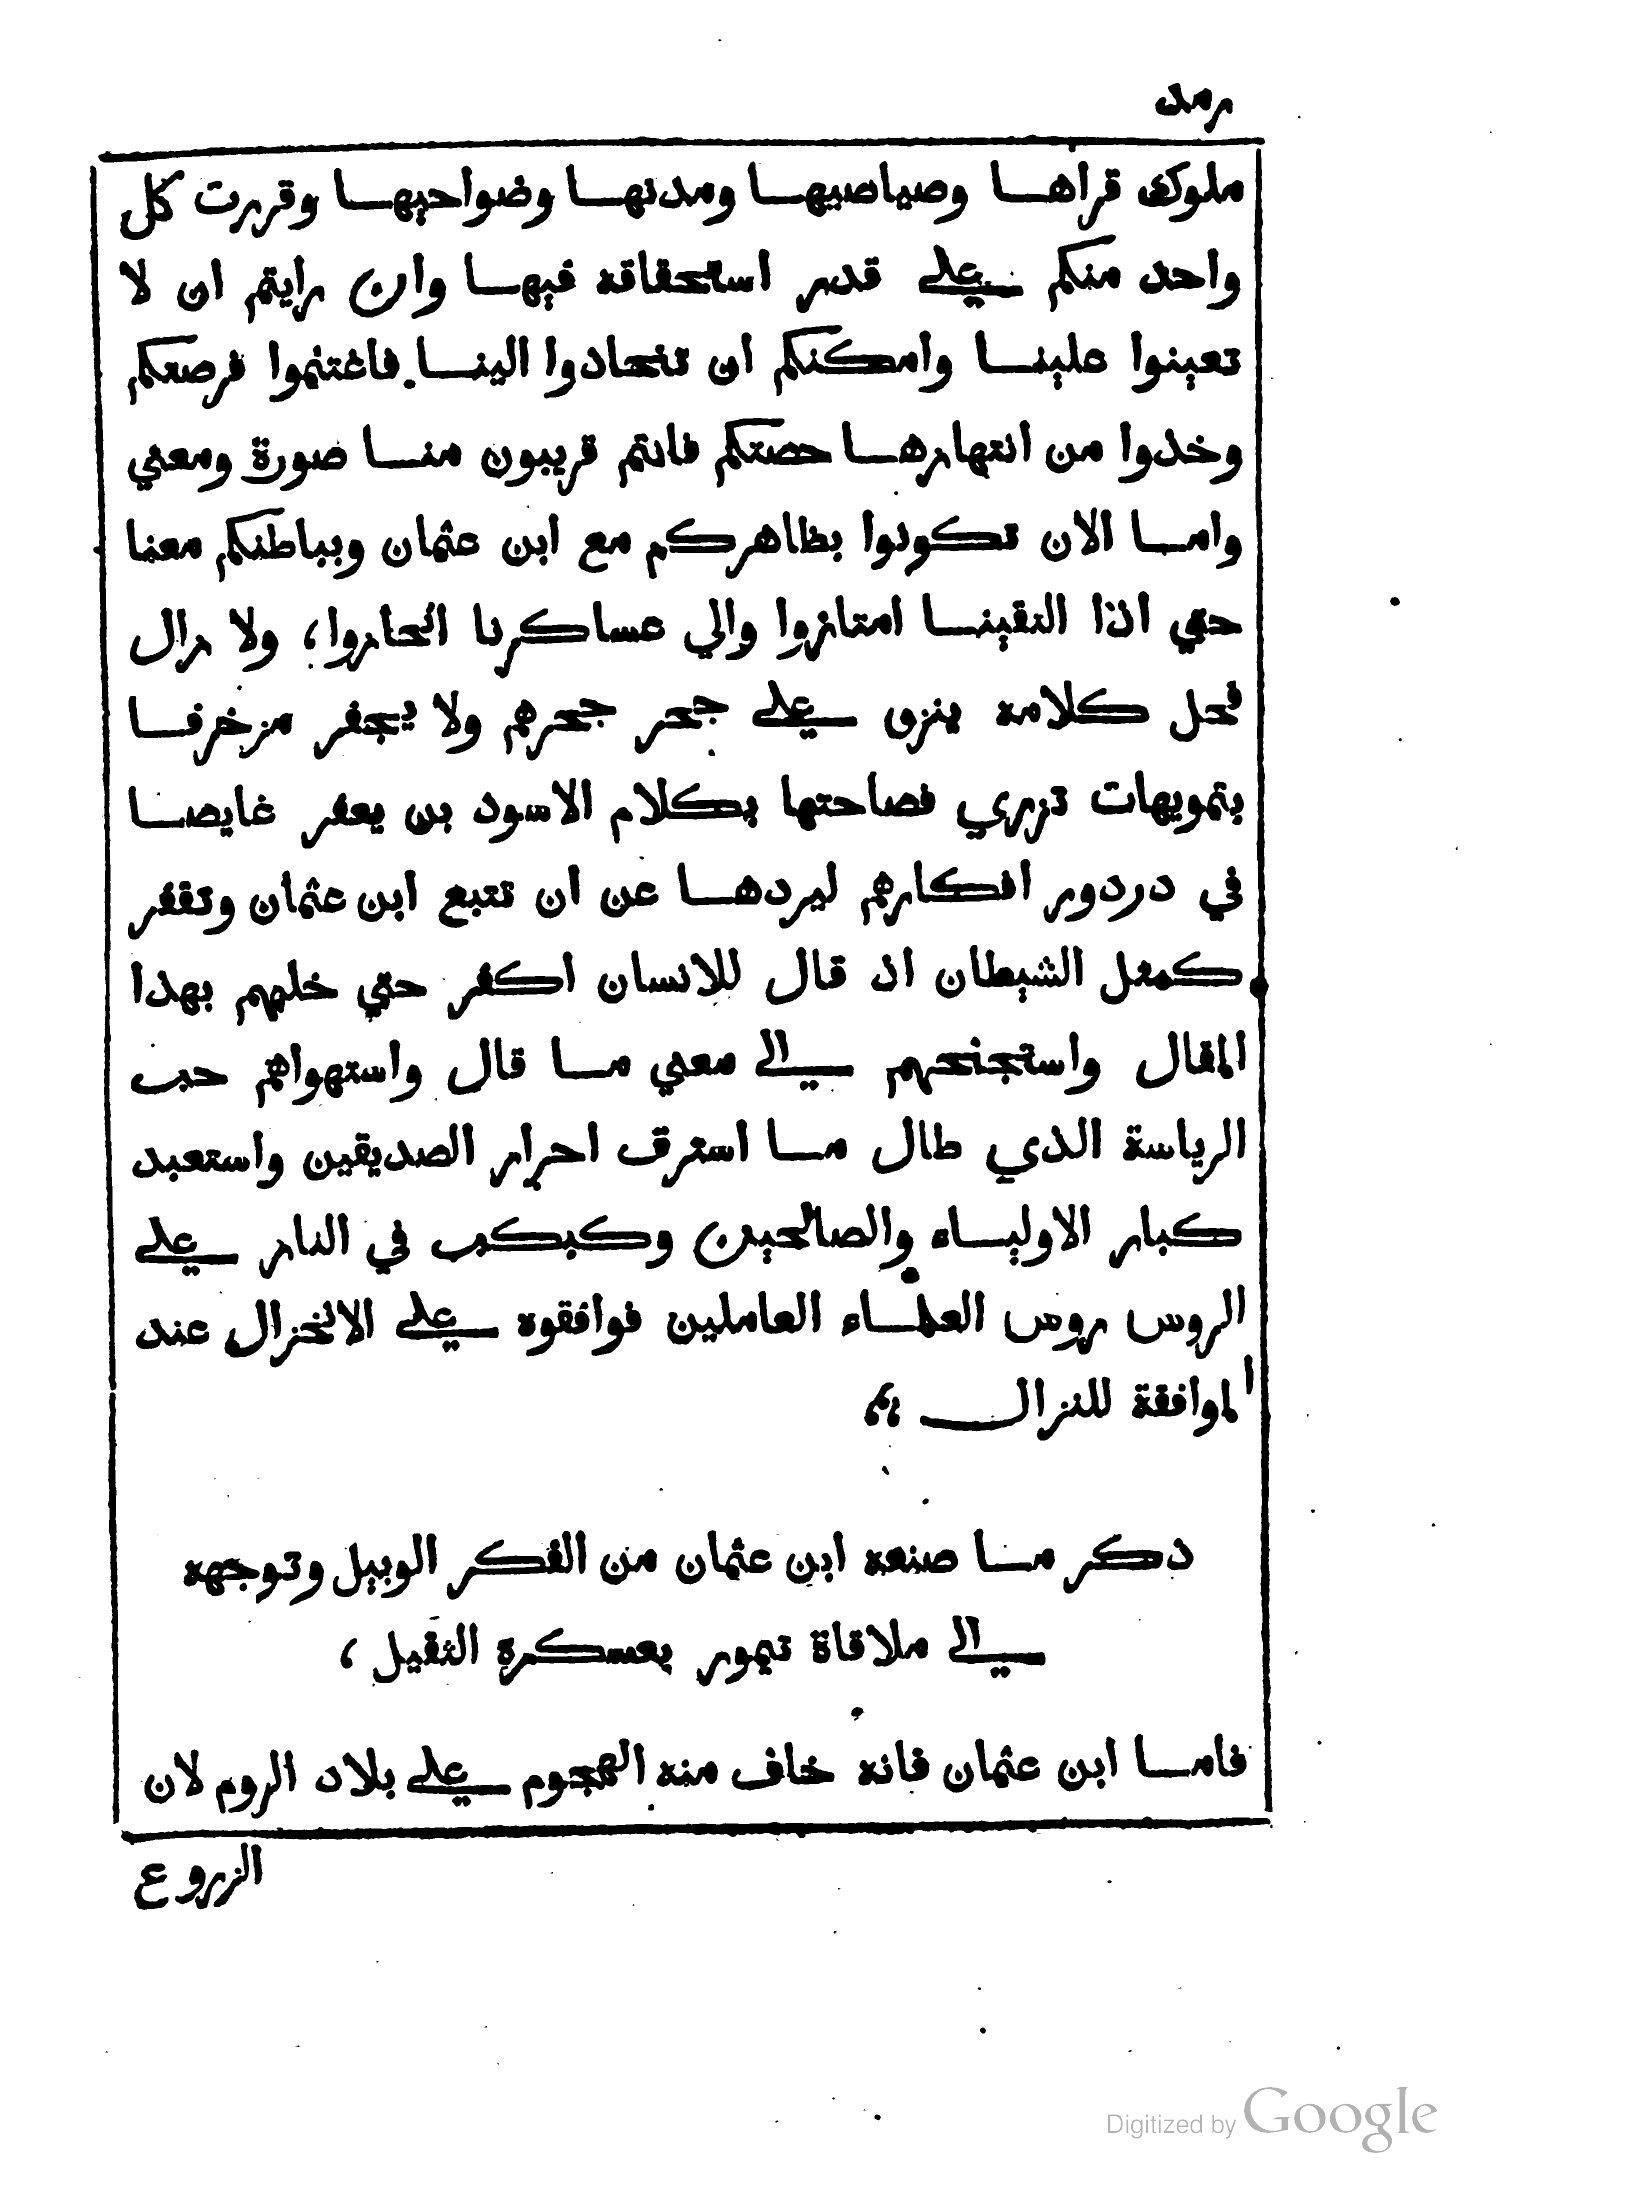 رمد
ملوك قراها وصياصيها ومدنها وضواحيها وقررت كل
واحد منكم علي قدر استحقاقه فيها وان رايتم ان لا
تعينوا علينا وامكنكم ان تنحادوا الينا فاغتنموا فرصتكم
وخدوا من انتهازها حصتكم فانتم قريبون منا صورة ومعني
واما الان تكونوا بظاهركم مع ابن عثمان وبباطنكم معنا
حتي اذا التقينا امتازوا والي عساكرنا انحازوا، ولا زال
فحل كلامه ينزو علي جحر جحرهم ولا يجفر مزخرفا
بتمويهات تزري فصاحتها بكلام الاسود بن يعفر غايصا
في دردور افكارهم ليردها عن ان تتبع ابن عثمان وتقفر
كمثل الشيطان اذ قال للانسان اكفر حتي خلبهم بهدا
المقال واستجنحهم الي معني ما قال واستهواهم حب
الرياسة الدي طال ما استرق احرار الصديقين واستعبد
كبار الاولياء والصالحين وكبكب في النار علي
الروس روس العلماء العاملين فوافقوه علي الانخزال عند
الموافقة للنزال ؛
دكر ما صنعه ابن عثمان من الفكر الوبيل وتوجهه
الي ملاقاة تيمور بعسكرة الثقيل ،
فاما ابن عثمان فانه خاف منه الهجوم علي بلاد الروم لان
الزروع
Digitized by Google